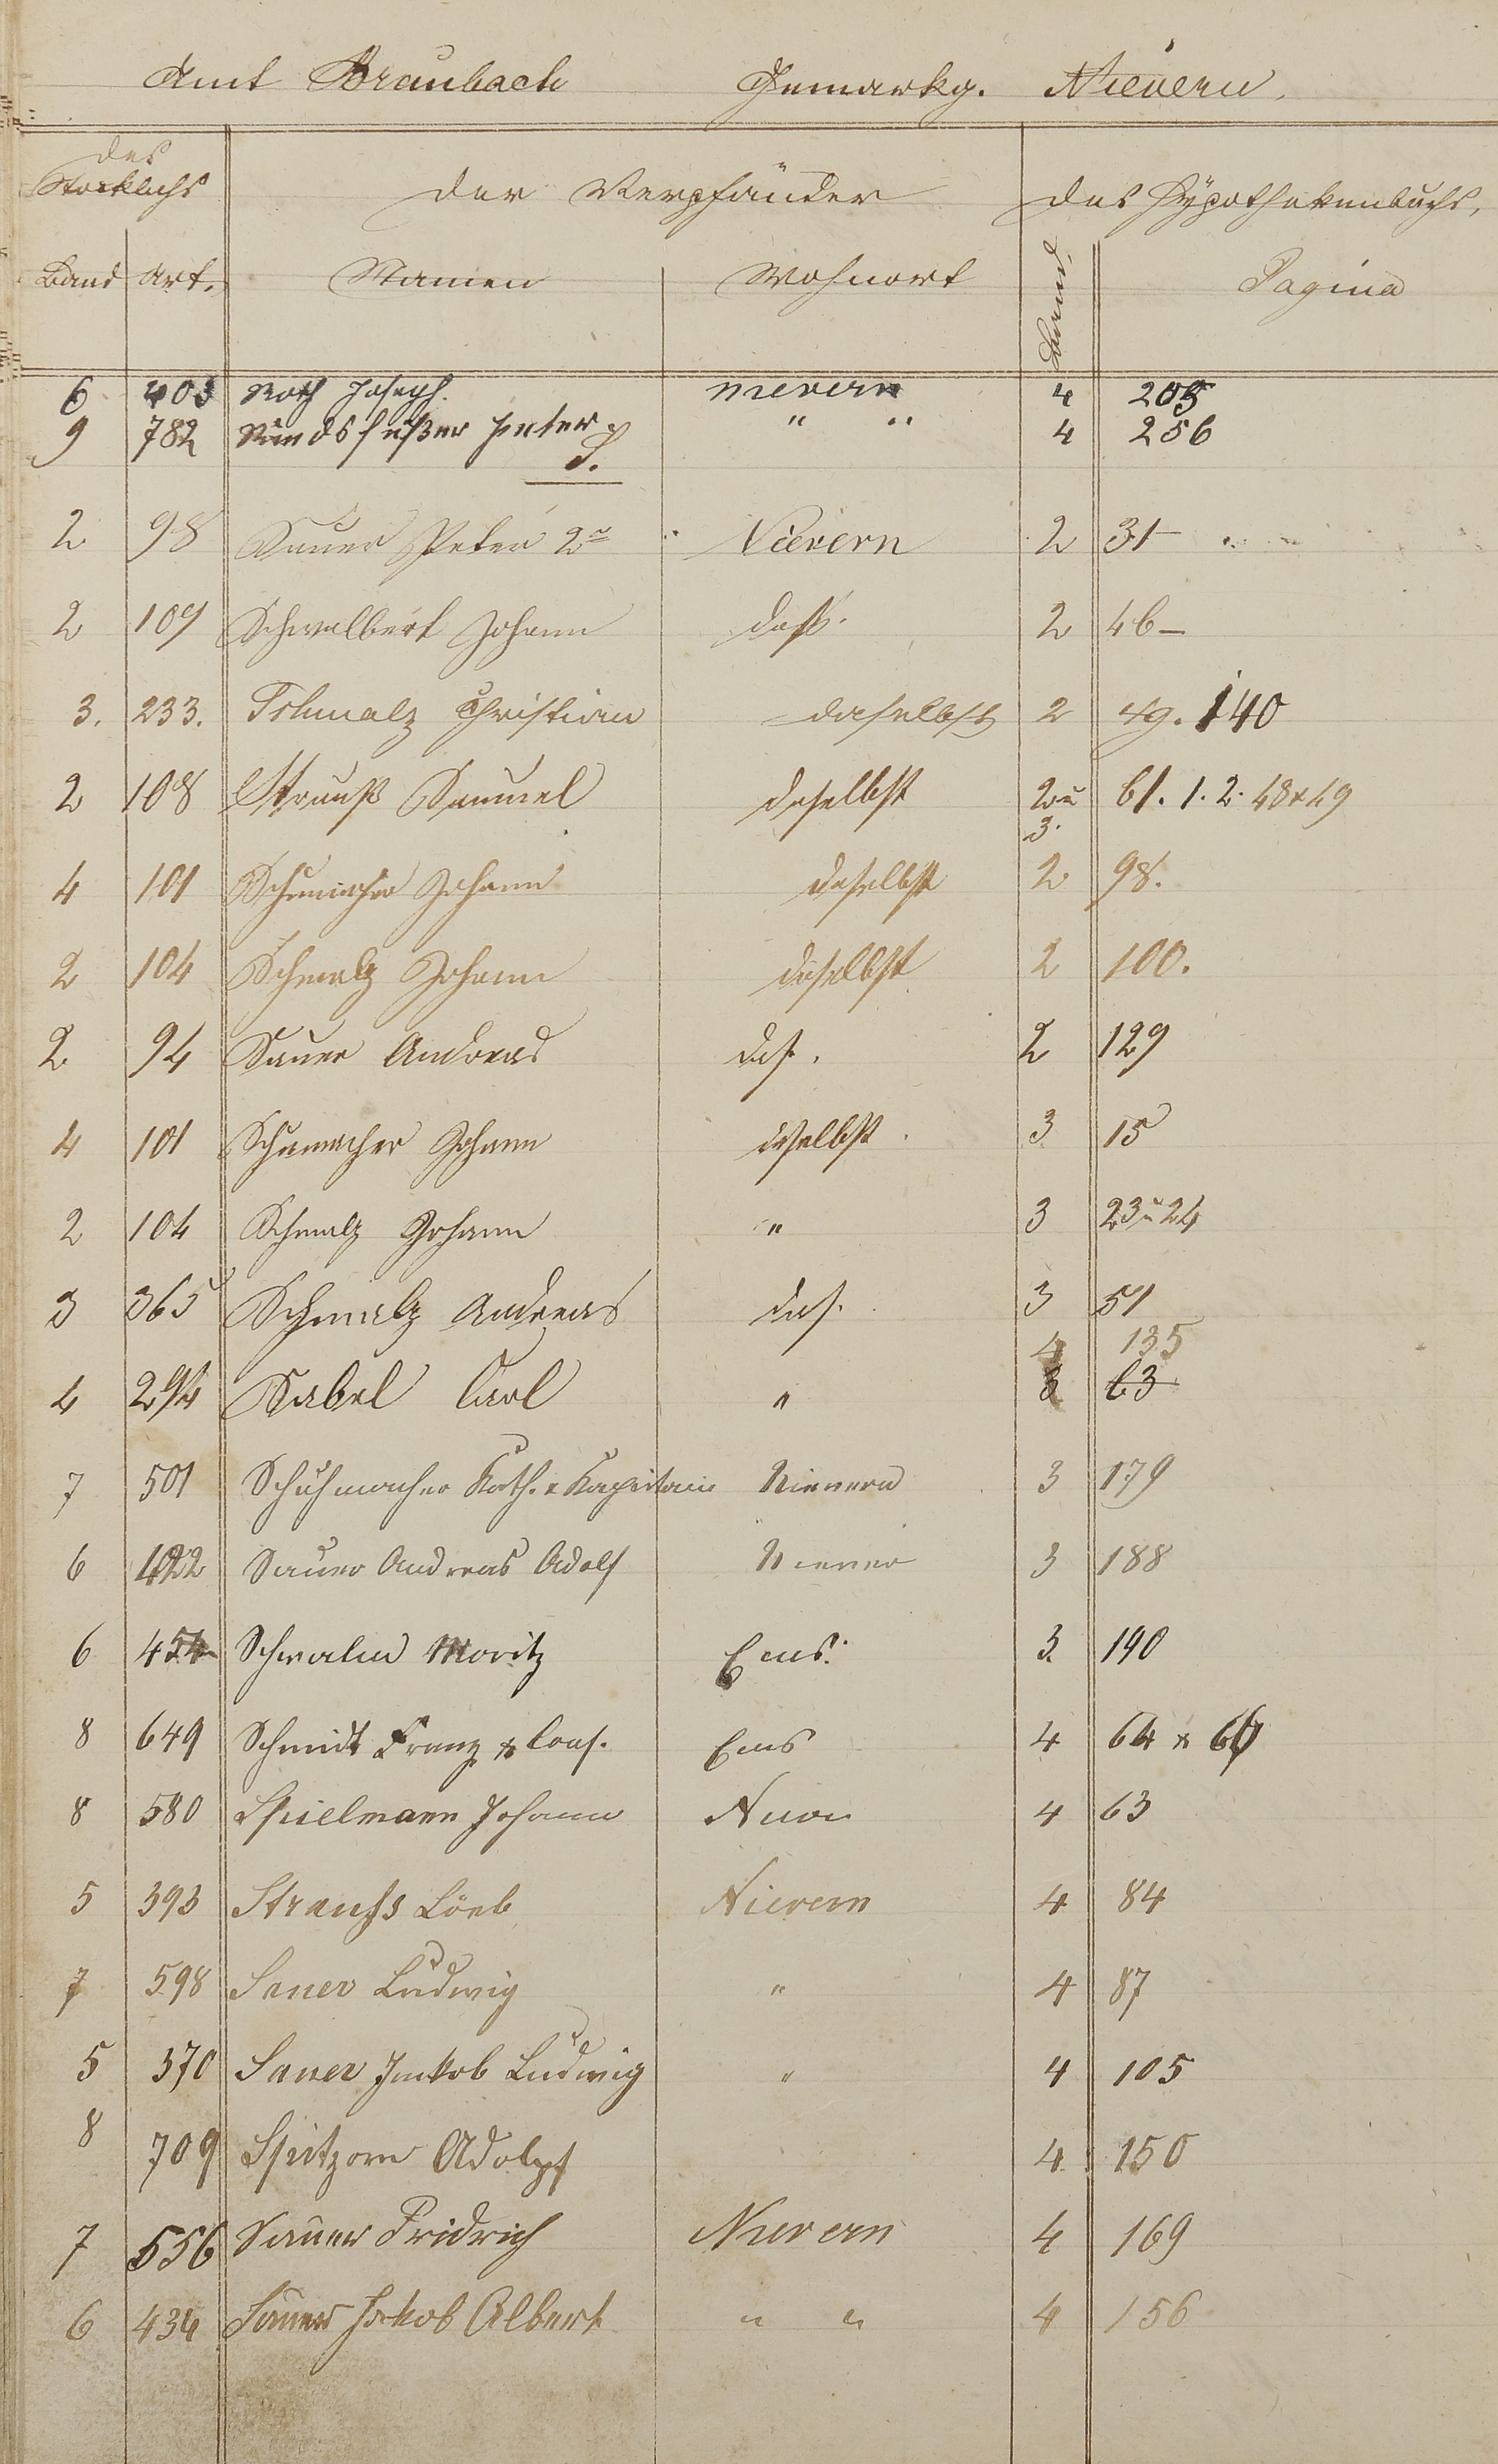 Amt Braubach Gemarkg. Nievern.
des Stockbuchs
der Verpfänder
des Hypothekenbuchs,
Band Art. Namen Wohnort Band. Pagina
6 403 Roth Joseph. Nievern 4 205
9 782 Peter " " 4 256
S.
2 98 Sauer Peter 2r Nievern 2 31
2 109 Schwalbert Johann das. 2 46
3. 233. Schmalz Christian daselbst 2 49. 140
2 108 Strauß Samuel daselbst 2 u 3. 61. 1. 2. 48 & 49
4 101 Schumacher Johann daselbst 2 98.
2 104 Schmalz Johann daselbst 2 100.
2 94 Sauer Andreas das. 2 129
4 101 Schumacher Johann daselbst 3 15
2 104 Schmalz Johann " 3 23 u 24
3 365 Schmalz Andreas das. 3 51
4 135
4 294 Sabel Carl " 3 63
7 501 Schuhmacher Kath. Kapitain Nievern 3 179
6 422 Sauer Andreas Adolf Nievern 3 188
6 454 Schwalm Moritz Ems. 3 190
8 649 Schmidt Franz & Cons. Ems 4 64 & 66
8 580 Spielmann Johann 4 63
5 393 Strauss Löeb Nievern 4 84
7 598 Sauer Ludwig " 4 87
5 370 Sauer Jakob Ludwig " 4 105
8 709 Spitzorn Adolpf 4 150
7 556 Sauer Fridrich Nievern 4 169
6 434 Sauer Jakob Albert " " 4 156